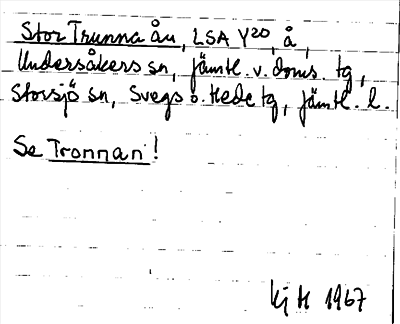 Stor Trunna ån, LSA Y20, å,
Undersåkers sn, jämtl. v. doms. tg,
Storsjö sn, Svegs o. Hede tg, jämtl. l.
Se Tronnan!
Kj H 1967